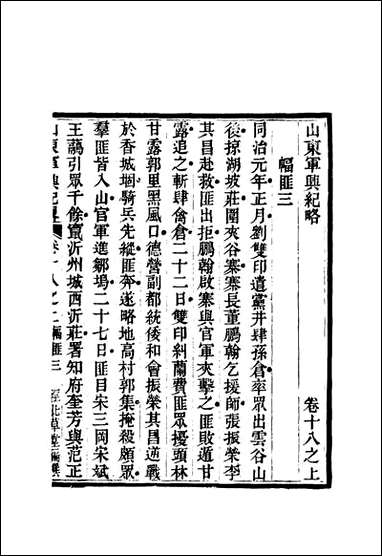 山東軍興紀略 卷十八之上
幅匪三
同治元年正月劉雙印遺黨井肆孫倉率眾出雲谷山
後掠湖坡莊圍夾谷寨寨長董鵬翰乞援師張振榮李
其昌赴救匪出拒鵬翰啟寨與官軍夾擊之匪敗遁甘
露追之斬肆禽倉二十二日雙印糾蘭費匪眾擾頭林
甘露郭里黑風口德營副都統倭和會振榮其昌逆戰
於香城堌騎兵先縱匪奔遂略地高村郭集掩殺頗眾
羣匪皆入山官軍進鄒塢二十七日匪目宋三岡宋斌
王蕅引眾千餘竄沂州城西沂莊署知府奎芳與范正
山東軍興紀略 卷十八之上 幅匪三